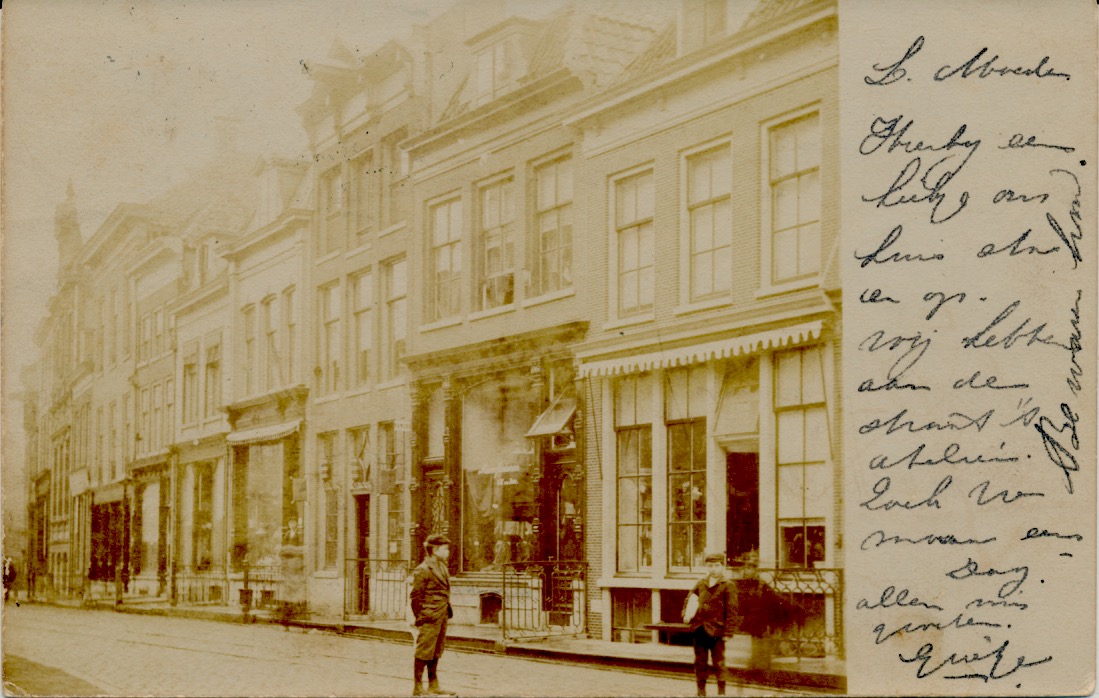 L. Moeder
Hierby een
kiekje ons
huis
en op.
wij hebben
aan de
straat 't
atelier.
Zoek
maar eens
Dag.
allen mis
groeten.
Grietje
Bewaren hem